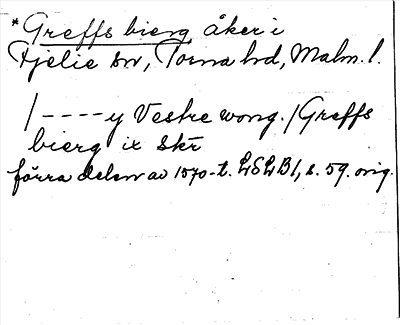 * Greffs bierg, åker i
Fjelie sn, Torna hd, Malm. l.
/ - - - - y Vestre wong. / Greffs
bierg ix Skr
förra delen av 1570-t. LSLB 1, s. 59. orig.